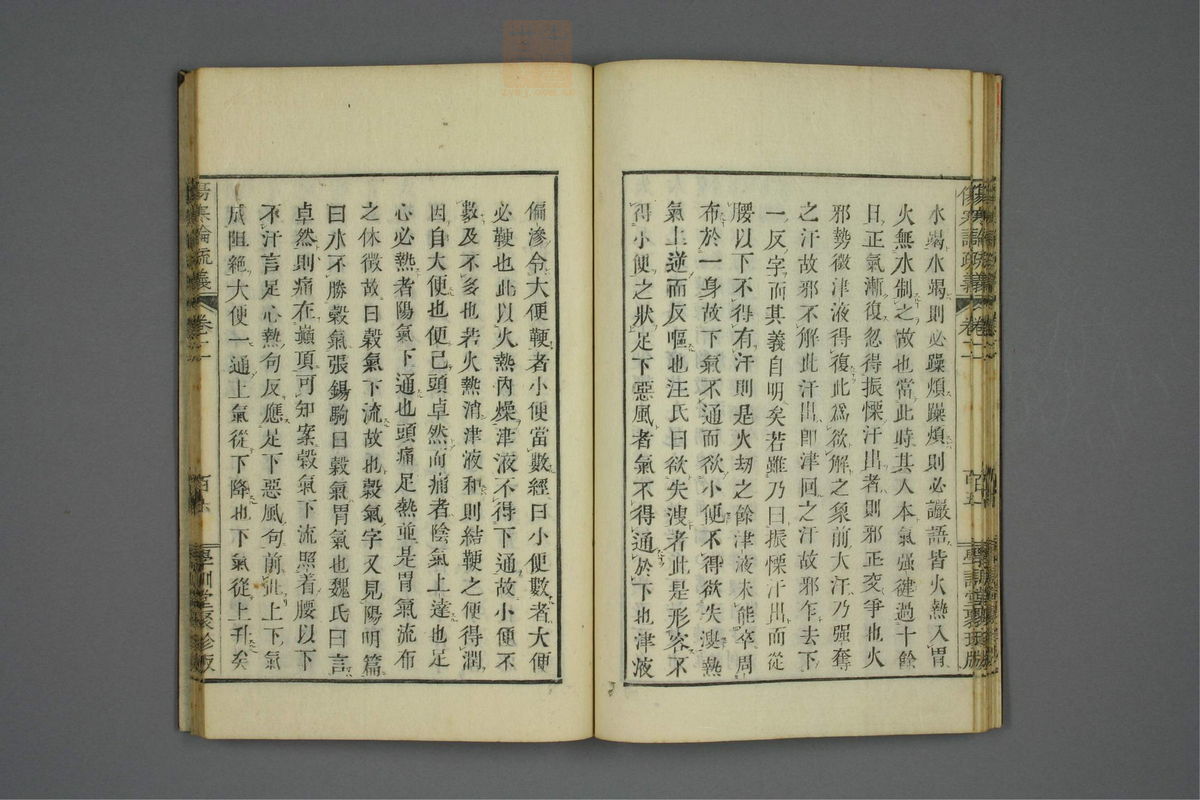 水竭水竭則必躁煩躁煩則必讝語皆火熱入胃
火無水制之故也當此時其人本氣强健過十餘
日正氣漸復忽得振慄汗出者則邪正交爭也火
邪勢微津液得復此爲欲解之象前大汗乃强奪
之汗故邪不解此汗出卽津回之汗故邪乍去下
一反字而其義自明矣若雖乃曰振慄汗出而從
腰以下不得有汗則是火劫之餘津液未能卒周
布於一身故下氣不通而欲小便不得欲失溲熱
氣上逆而反嘔也汪氏曰欲失溲者此是形容不
得小便之狀足下惡風者氣不得通於下也津液
偏滲令大便鞕者小便當數經曰小便數者大便
必鞕也此以火熱內燥津液不得下通故小便不
數及不多也若火熱消津液和則結鞕之便得潤
因自大便也便已頭卓然而痛者陰氣上達也足
心必熱者陽氣下通也頭痛足熱並是胃氣流布
之休徵故曰穀氣下流故也穀氣字又見陽明篇
曰水不勝穀氣張錫駒曰穀氣胃氣也魏氏曰言
卓然則痛在巔頂可知案穀氣下流照着腰以下
不汗言足心熱句反應足下惡風句前此上下氣
成阻絶大便一通上氣從下降也下氣從上升矣
傷寒論疏義
卷二
學訓堂聚珍版